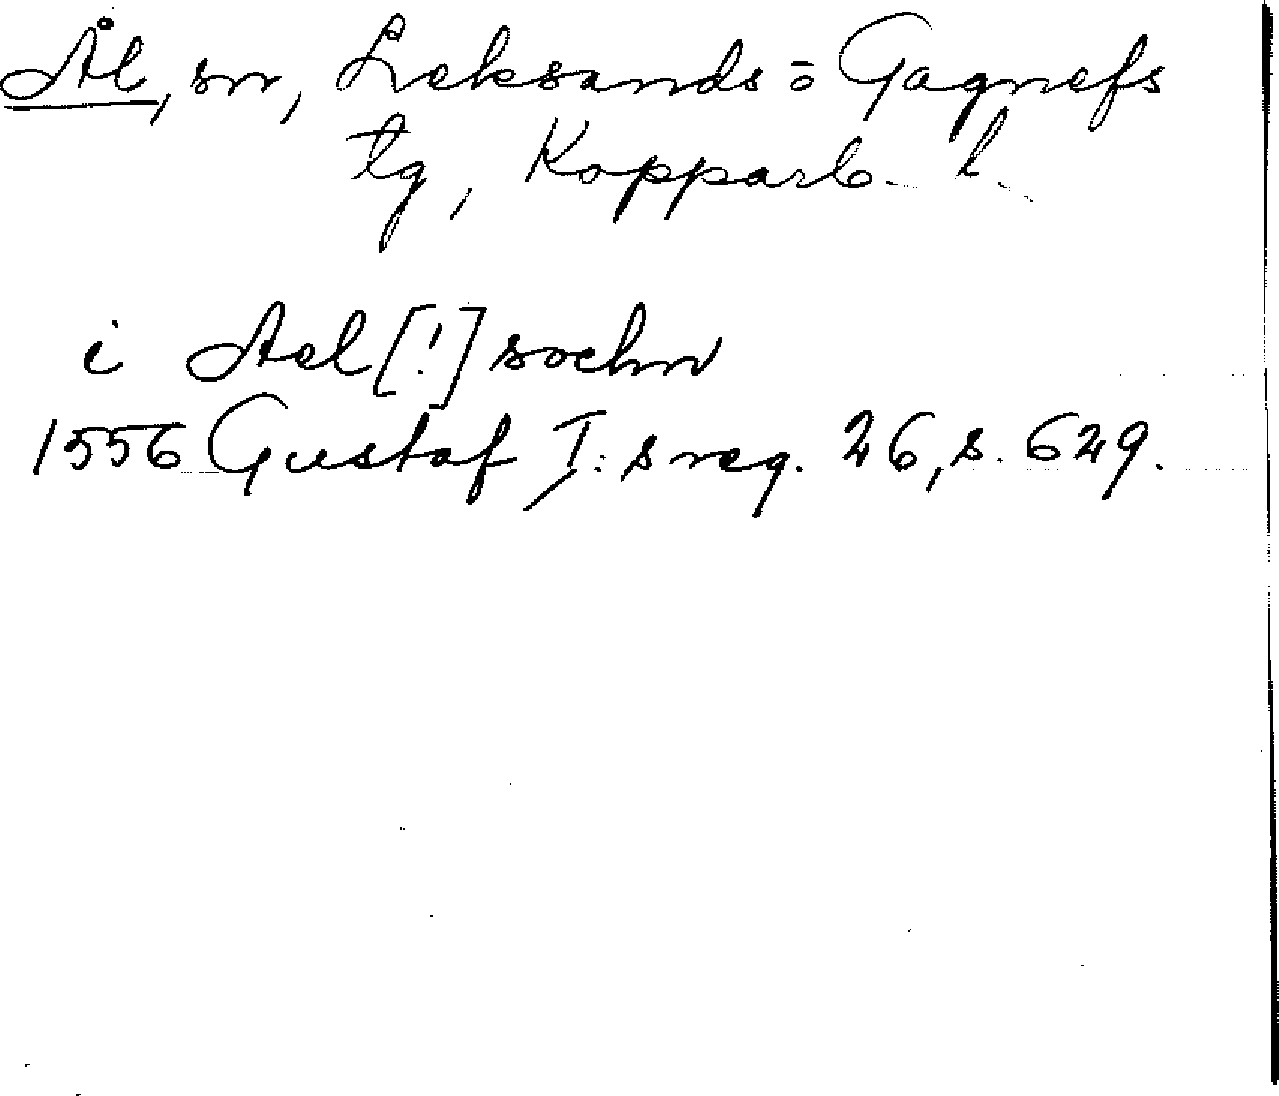 Ål, sn, Leksands= Gagnefs
tg, Kopparb. l.
i Ael [!] sochn
1556 Gustaf I: s reg. 26, s. 629.